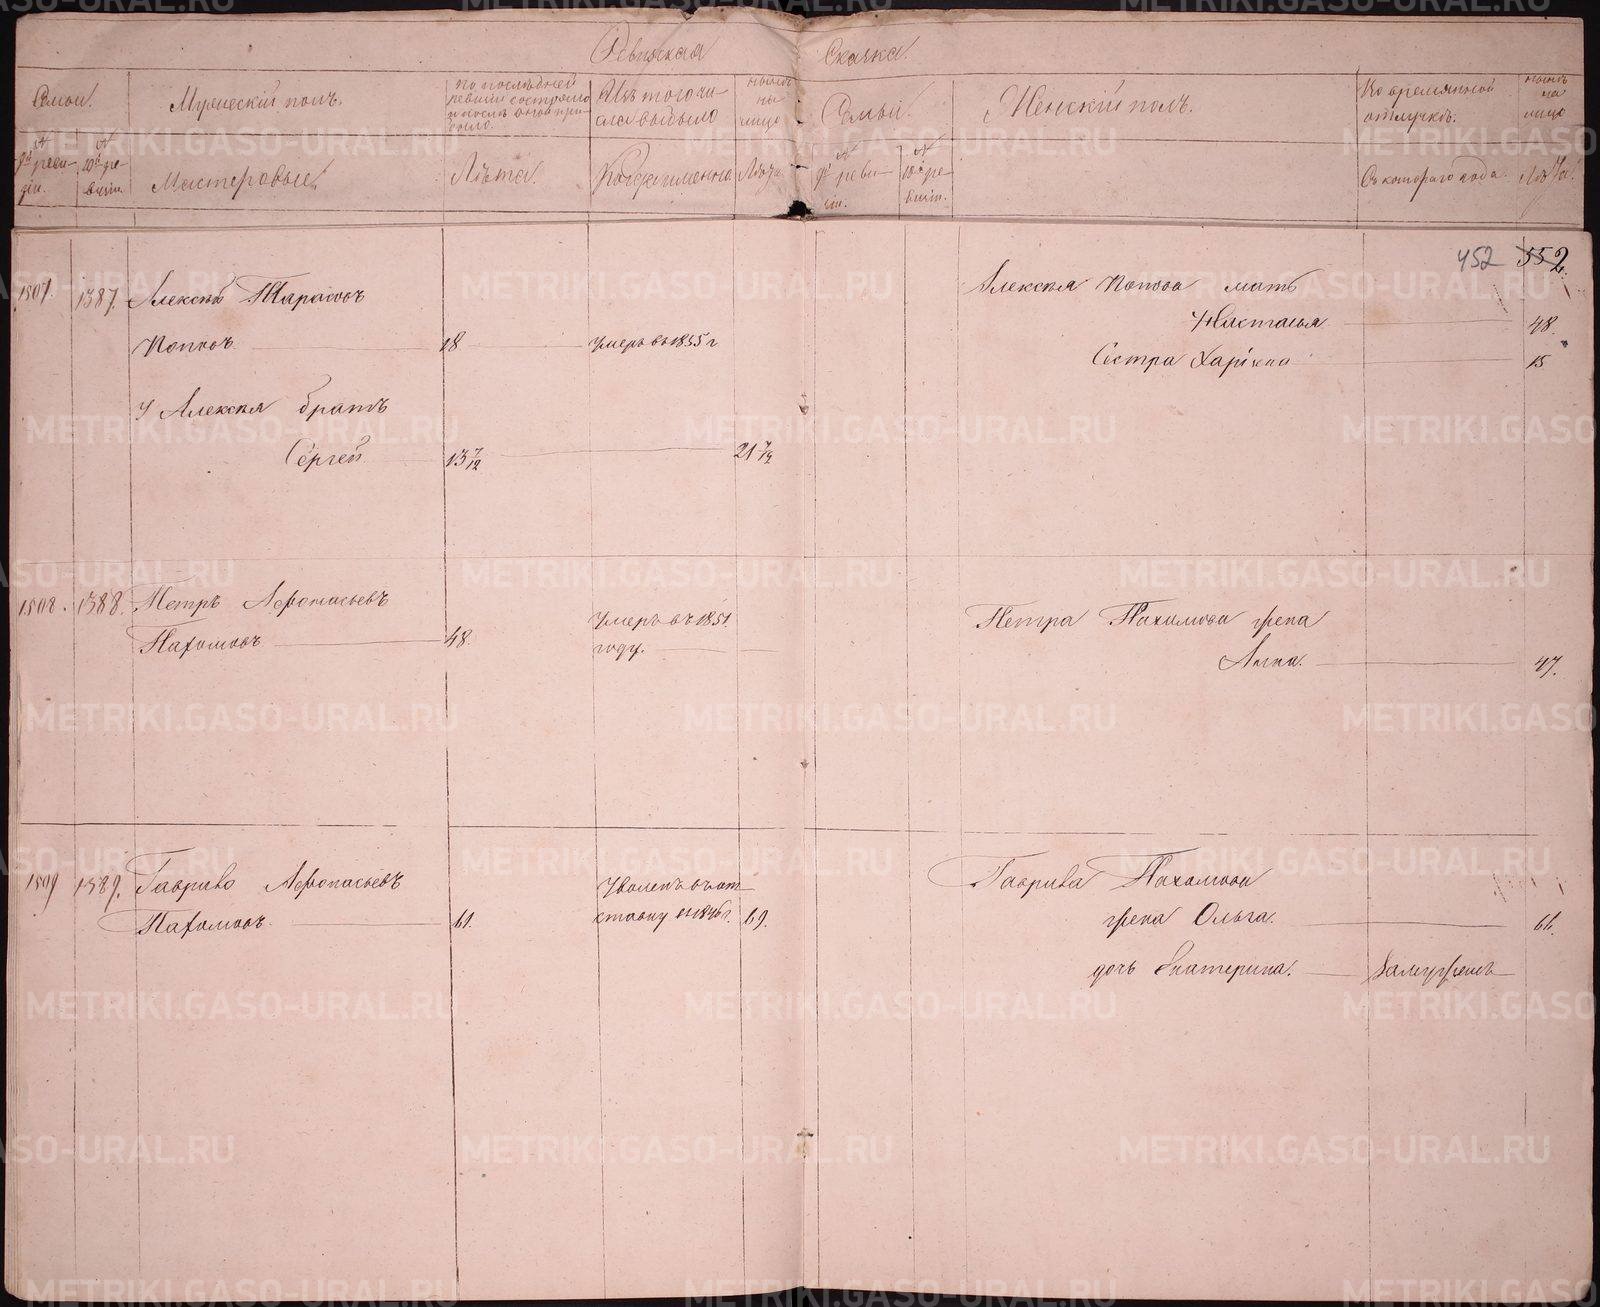 Ревизская Сказка.
Семьи.
Мужеский полъ.
По последней
ревизiи состояло
и после оной при
было.
Изъ того чи
сла выбыло
ныне
на
лицо
Семьи.
Женскiй полъ.
Во временной
отлучке.
ныне
на
лицо
№
9й реви
зiи.
№
10й ре
визiи.
Мастеровые
Лета.
Когда именно
Лета
№
9й реви
зiи.
№
10й ре
визiи.
Съ котораго года.
Лета.
452 552.
1507. 1387. Алексей Тарасовъ
Поповъ 18 Умеръ въ 1855 г
У Алексея братъ
Сергей 13 7/12 21 7/12
Алексея Попова мать
Настасья 48.
Сестра 15
1508. 1388. Петръ Афонасьевъ
Пахомовъ 48. Умеръ въ 1851.
году.
Петра Пахомова жена
Анна. 47.
1509 1389. Гаврило Афонасьевъ
Пахомовъ. 61. Уволенъ въ от
ставку въ 1846 г. 69.
Гаврила Пахомова
жена Ольга. 66.
дочь Екатерина. Замужемъ
METRIKI.GASO-URAL.RU